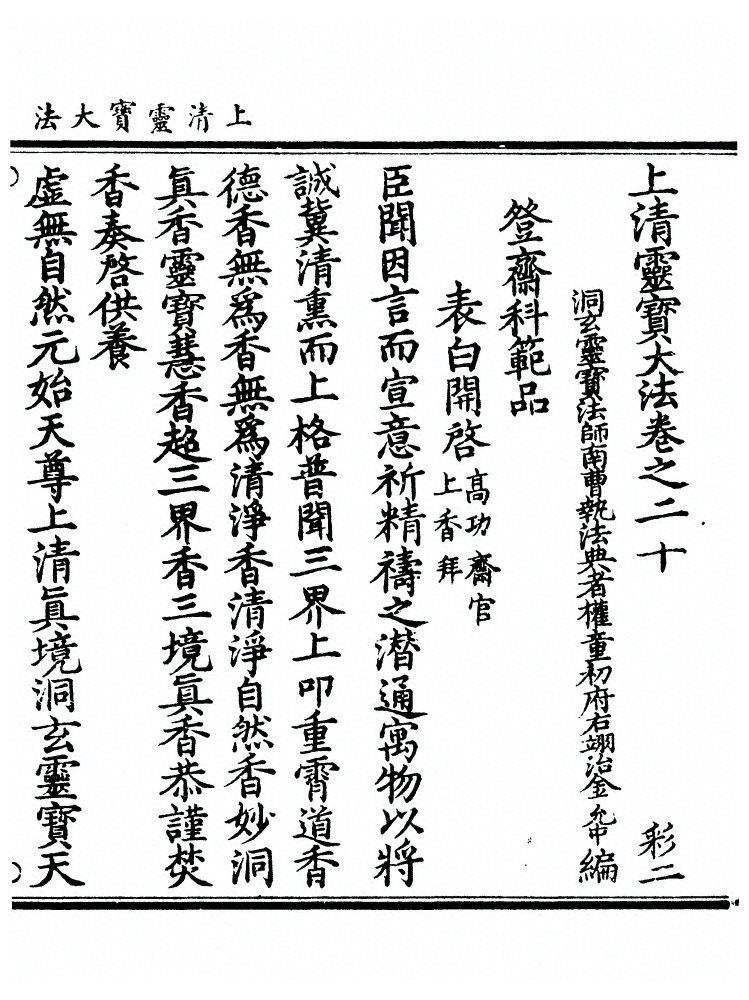 上清靈寶大法
上清靈寶大法卷之二十 彩二
洞玄靈寶法師南曹執法典者權童初府右翊治金允中編
登齋科範品
表白開啓 高功齋官上香拜
臣聞因言而宣意祈精禱之潛通寓物以將
誠冀清熏而上格普聞三界上叩重霄道香
德香無爲香無爲清淨香清淨自然香妙洞
眞香靈寶慧香超三界香三境眞香恭謹焚
香奏啓供養
虛無自然元始天尊上清眞境洞玄靈寶天